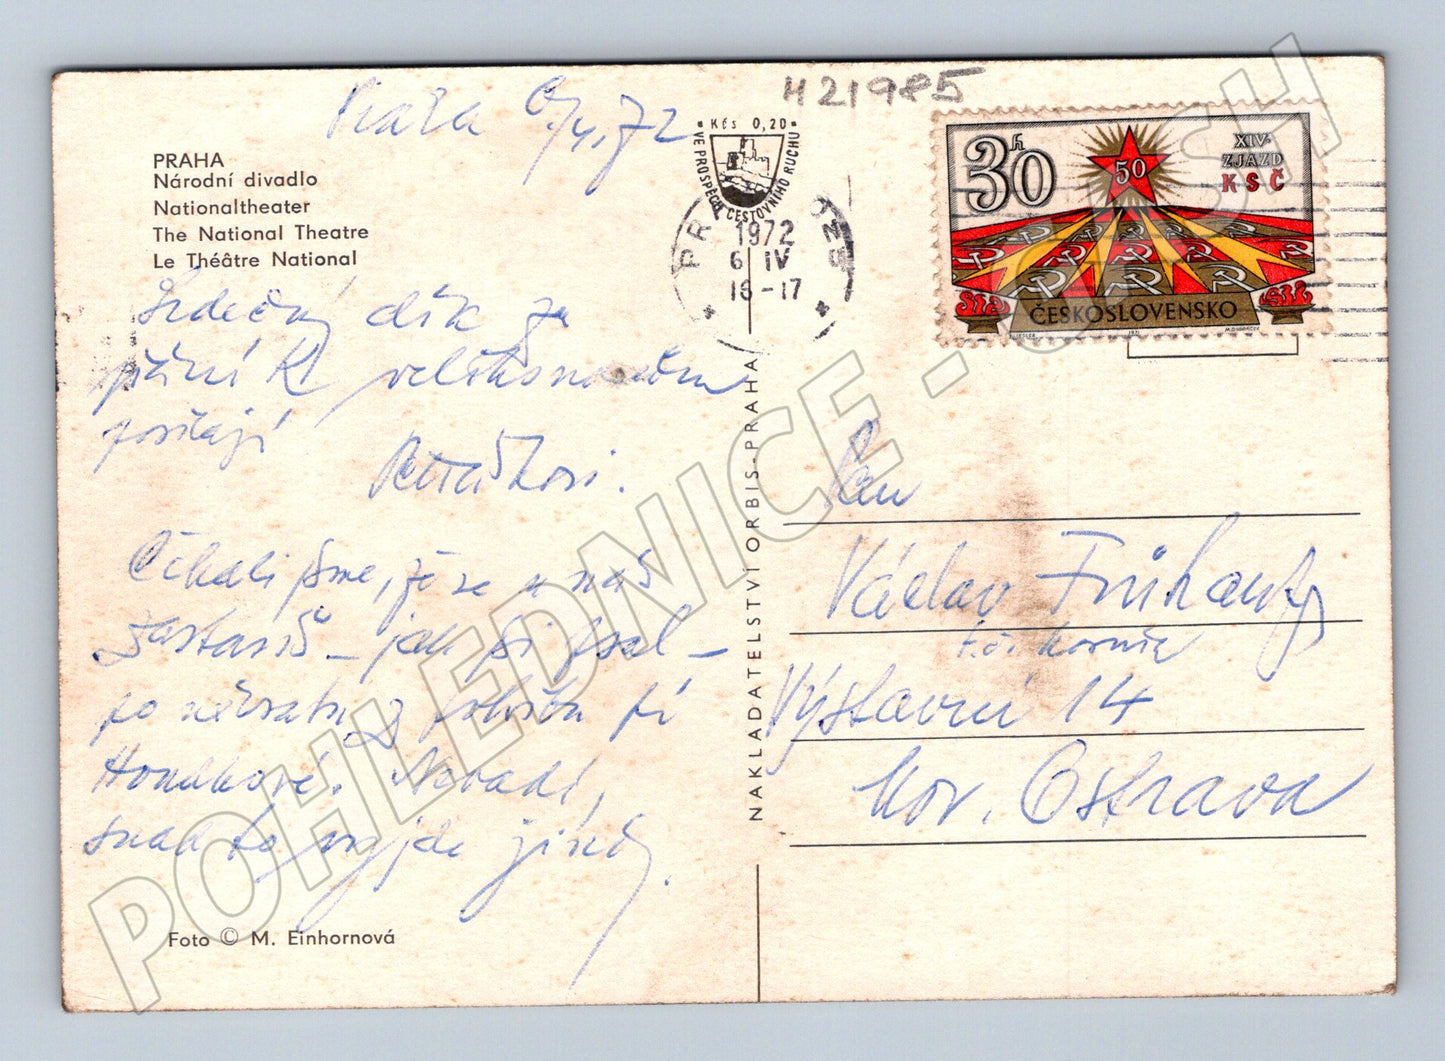 Praha 6/4,72
H21985
PRAHA
Národní divadlo
Nationaltheater
The National Theatre
Le Théâtre National
Kčs 0,20
VE PROSPĚCH CESTOVNÍHO RUCHU
PR
1972
6 IV
16-17
30h
50
XIV.
ZJAZD
KSČ
ČESKOSLOVENSKO
Srdečný dík za
přání k velikonocům
posílají
Čekali jsme, že se u nás
zastavíš – jak jsi psal –
po návratu z
Nevadí,
snad to vyjde jindy.
Foto © M. Einhornová
NAKLADATELSTVÍ ORBIS-PRAHA
Pan
Václav Frühauf
Výstavní 14
Mor. Ostrava
POHLEDNICE - CASH